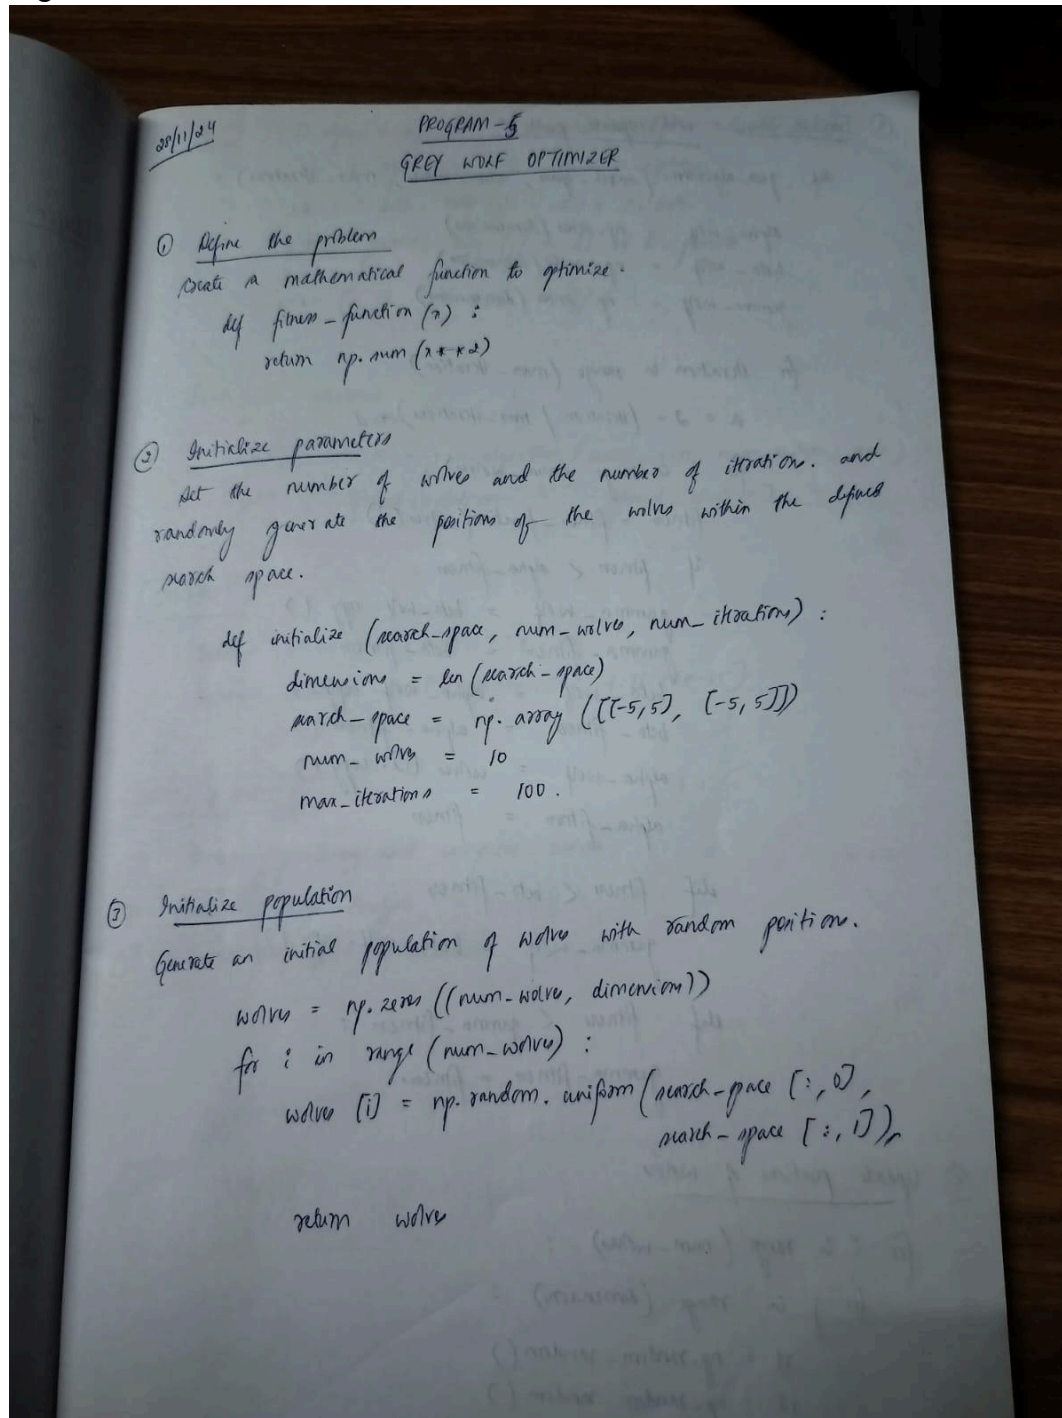 28/11/24
PROGRAM-5
GREY WOLF OPTIMIZER
① Define the problem
create a mathematical function to optimize.
def fitness_function (x) :
return np.sum (x**2)
② Initialize parameters
set the number of wolves and the number of itrations. and
randomly generate the positions of the wolves within the defined
search space.
def initialize (search_space, num_wolves, num_itrations) :
dimensions = len (search_space)
search_space = np. array ([[-5,5], [-5,5]])
num_wolves = 10
max_itrations = 100.
③ Initialize population
Generate an initial population of wolves with random positions.
wolves = np.zeros ((num_wolves, dimensions))
for i in range (num_wolves) :
wolves [i] = np.random. uniform (search_space [:,0],
search_space [:,1])
return wolves